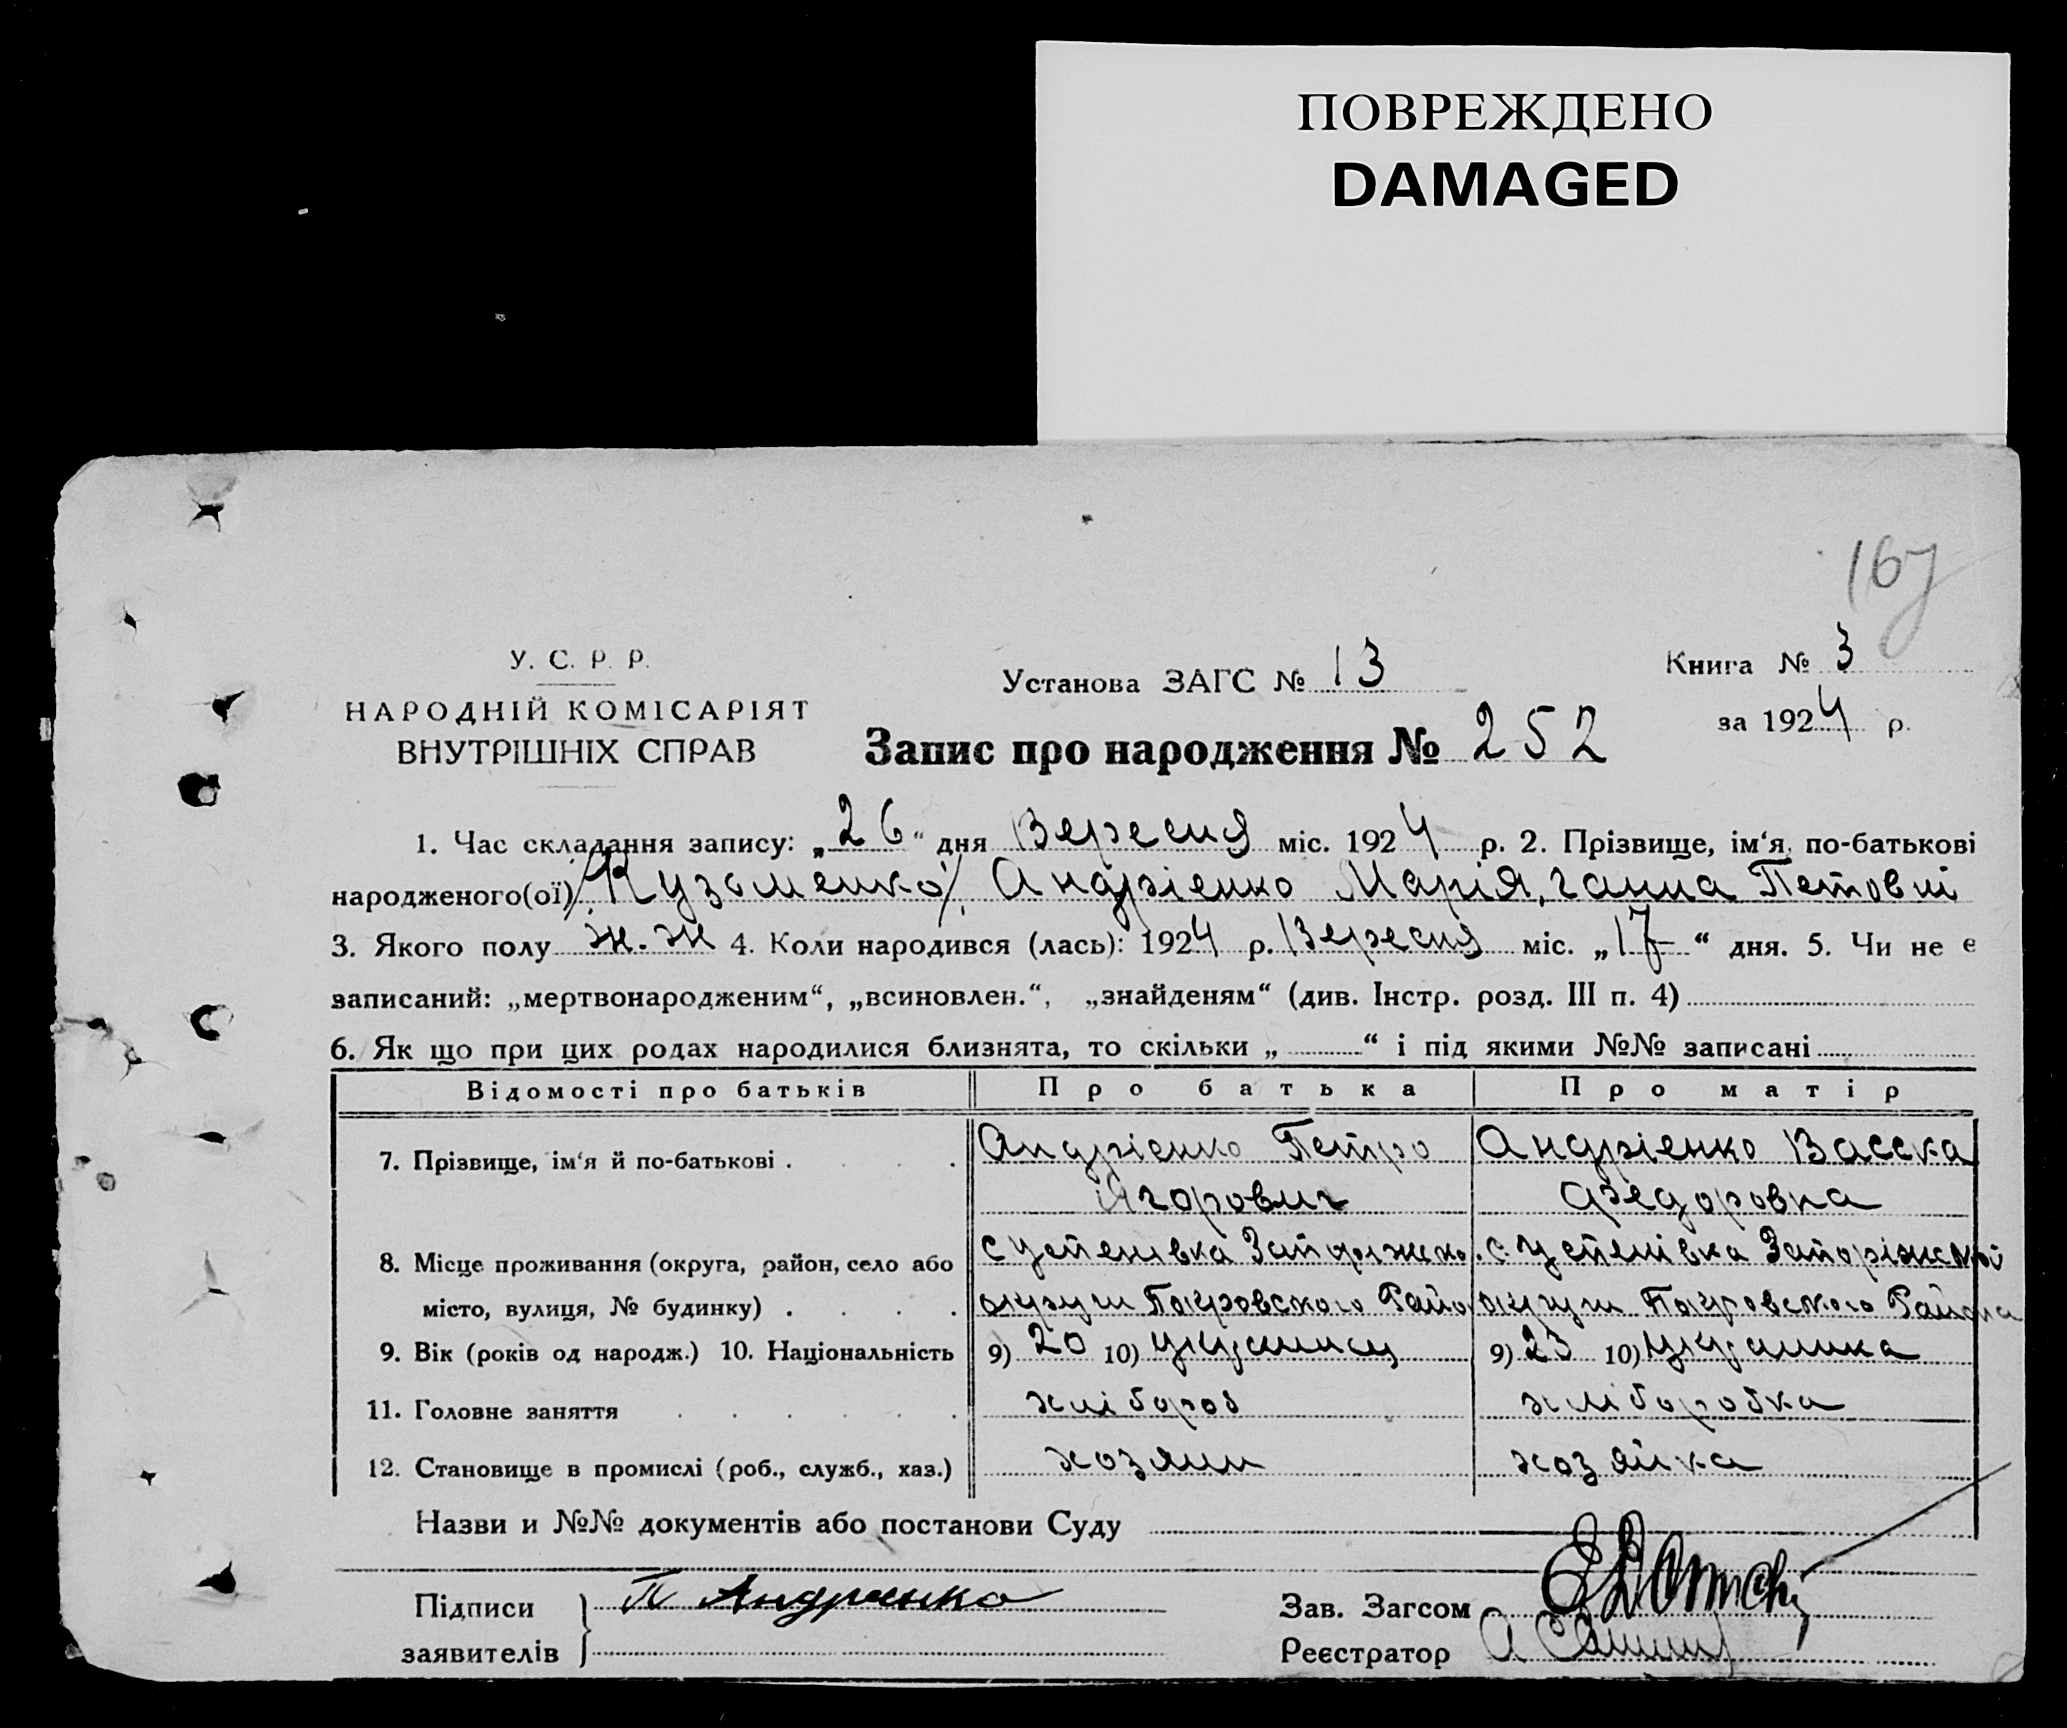 ПОВРЕЖДЕНО
DAMAGED
167
У. С. Р. Р.
НАРОДНІЙ КОМІСАРІЯТ
ВНУТРІШНІХ СПРАВ
Установа ЗАГС № 13
Книга № 3
за 1924 р.
Запис про народження № 252
1. Час складання запису: „26“ дня Вересня міс. 1924 р. 2. Прізвище, ім‘я, по-батькові
народженого(ої) /Кузьменко/, Андрієнко Марія, Ганна Петовні
3. Якого полу ж. ж 4. Коли народився (лась): 1924 р. Вересня міс. „17“ дня. 5. Чи не є
записаний: „мертвонародженим“, „всиновлен.“, „знайденям“ (див. Інстр. розд. III п. 4)
6. Як що при цих родах народилися близнята, то скільки „ “ і під якими №№ записані
Відомості про батьків Про батька Про матір
7. Прізвище, ім‘я й по-батькові . . . . Андрієнко Петро Андрієнко Васска
Ягорович Федоровна
8. Місце проживання (округа, район, село або с Успенівка с. Успенівка Запоріжской
місто, вулиця, № будинку) . . . . округи Покровського Райо округи Покровського Района
9. Вік (років од народж.) 10. Національність 9) 20 10) українец 9) 23 10) українка
11. Головне заняття . . . . . . хлібороб хліборобка
12. Становище в промислі (роб., служб., хаз.) хозяин хозяйка
Назви и №№ документів або постанови Суду
Підписи П Андриенко Зав. Загсом
заявителів Реєстратор